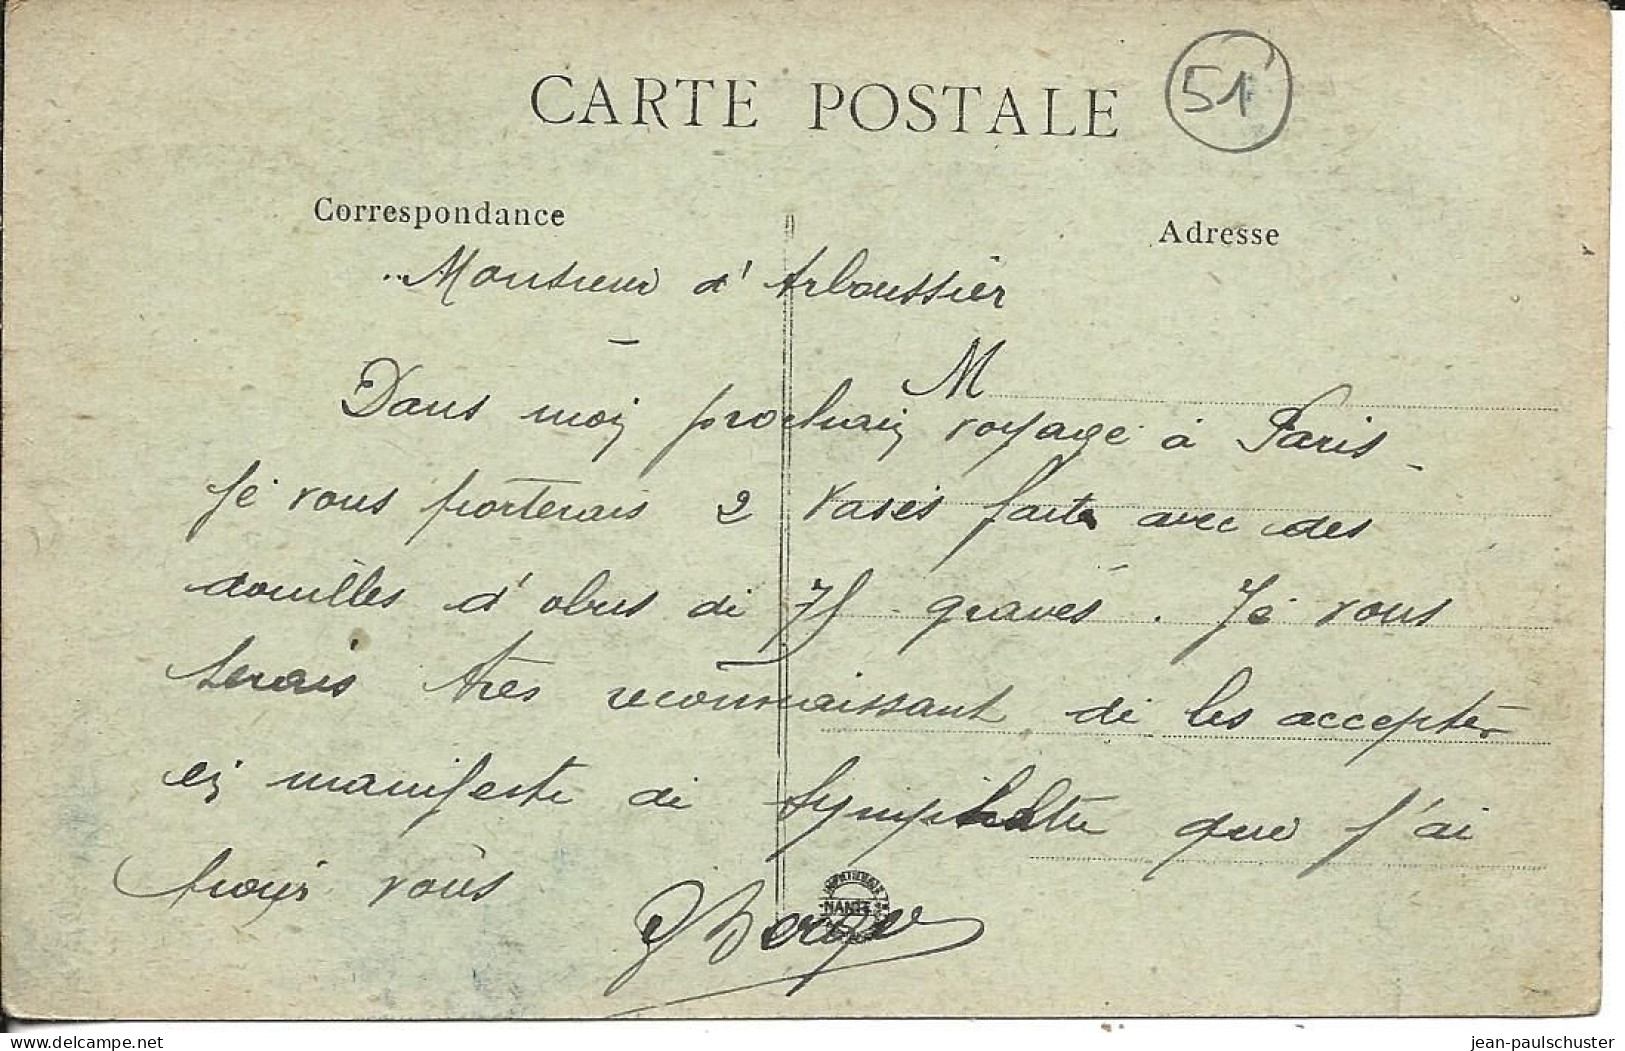 CARTE POSTALE
51
Correspondance
Adresse
Monsieur d'Arboussier
M
Dans mon prochain voyage à Paris
Je vous porterais 2 vases faits avec des
douilles d'obus de 75 gravés. Je vous
serais très reconnaissant de les accepter
en manifeste de sympathie que j'ai
pour vous
NANTES
delcampe.net
jean-paulschuster